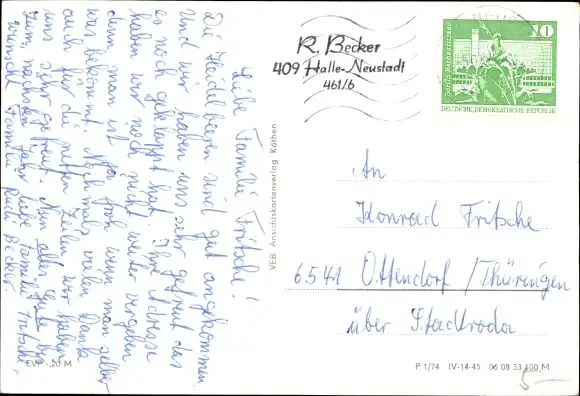 Liebe Familie Fritsche!
Die Heidelbeeren sind gut angekommen
und wir haben uns sehr gefreut das
es noch geklappt hat. Ihre Adresse
haben wir noch nicht weiter vergeben
denn man ist froh wenn man selbst
was bekommt. Nochmals vielen Dank
auch für die netten Zeilen, wir haben
uns sehr gefreut. Nun alles Gute bis
zum nächsten Jahr liebe Familie Fritsche,
wünscht Familie Rudi Becker
EVP -,20 M
VEB Ansichtskartenverlag Köthen
R. Becker
409 Halle-Neustadt
461/6
10
DEUTSCHE DEMOKRATISCHE REPUBLIK
An
Konrad Fritsche
6541 Ottendorf/Thüringen
über Stadtroda
P 1/74 IV-14-45 06 08 33 100 M
5,—